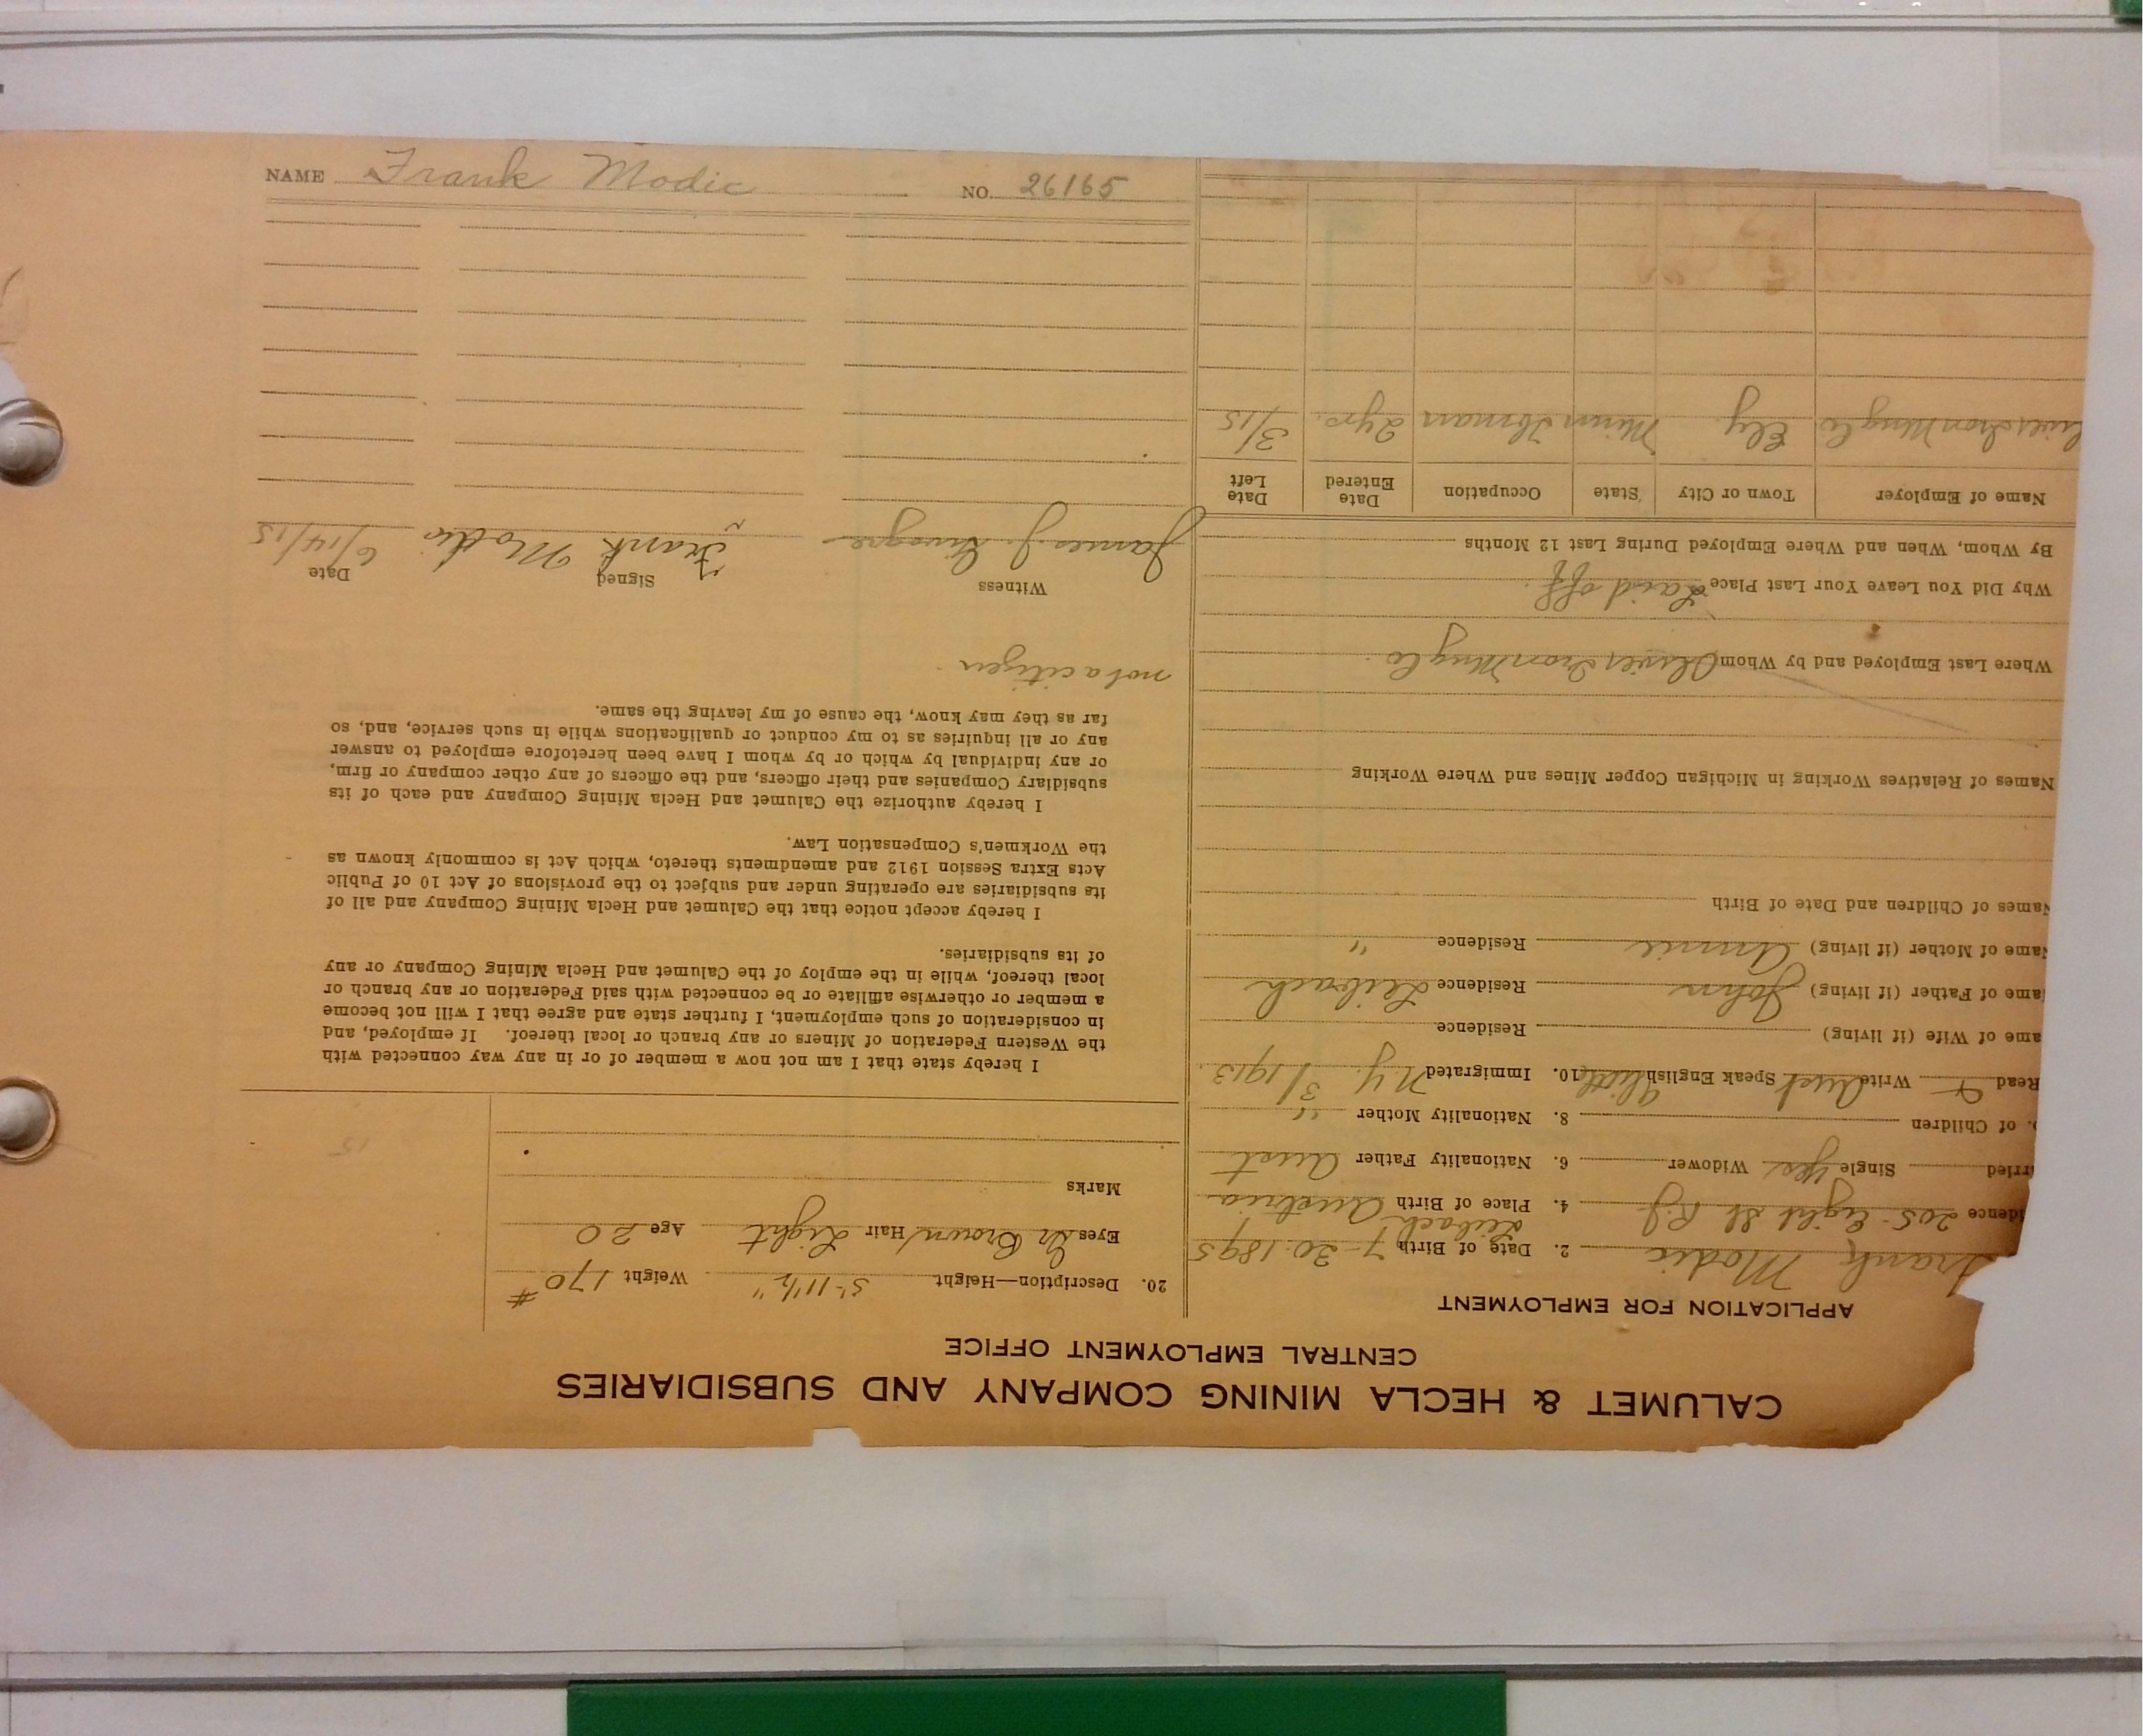 CALUMET & HECLA MINING COMPANY AND SUBSIDIARIES
CENTRAL EMPLOYMENT OFFICE
APPLICATION FOR EMPLOYMENT
Frank Modic 2. Date of Birth 7-30-1895
idence 205- Eight St R.J. 4. Place of Birth Leibach Austria
rried Single Yes Widower 6. Nationality Father Aust
o. of Children 8. Nationality Mother "
Read & Write Aust Speak English Little 10. Immigrated N.Y. 3/1913
ame of Wife (if living) Residence
ame of Father (if living) John Residence Leibach
ame of Mother (if living) Annie Residence "
Names of Children and Date of Birth
Names of Relatives Working in Michigan Copper Mines and Where Working
Where Last Employed and by Whom Oliver Iron Mng Co.
Why Did You Leave Your Last Place Laid off.
By Whom, When and Where Employed During Last 12 Months
Name of Employer Town or City State Occupation Date Entered Date Left
liver Iron Mng Co Ely Minn 2 yrs. 3/15
20. Description—Height 5'-11½" Weight 170#
Eyes Dr Brown Hair Light Age 20
Marks
I hereby state that I am not now a member of or in any way connected with
the Western Federation of Miners or any branch or local thereof. If employed, and
in consideration of such employment, I further state and agree that I will not become
a member or otherwise affiliate or be connected with said Federation or any branch or
local thereof, while in the employ of the Calumet and Hecla Mining Company or any
of its subsidiaries.
I hereby accept notice that the Calumet and Hecla Mining Company and all of
its subsidiaries are operating under and subject to the provisions of Act 10 of Public
Acts Extra Session 1912 and amendments thereto, which Act is commonly known as
the Workmen's Compensation Law.
I hereby authorize the Calumet and Hecla Mining Company and each of its
subsidiary Companies and their officers, and the officers of any other company or firm,
or any individual by which or by whom I have been heretofore employed to answer
any or all inquiries as to my conduct or qualifications while in such service, and, so
far as they may know, the cause of my leaving the same.
not a citizen.
Witness Signed Date
James J. Frank Modic 6/14/15
NAME Frank Modic NO. 26165